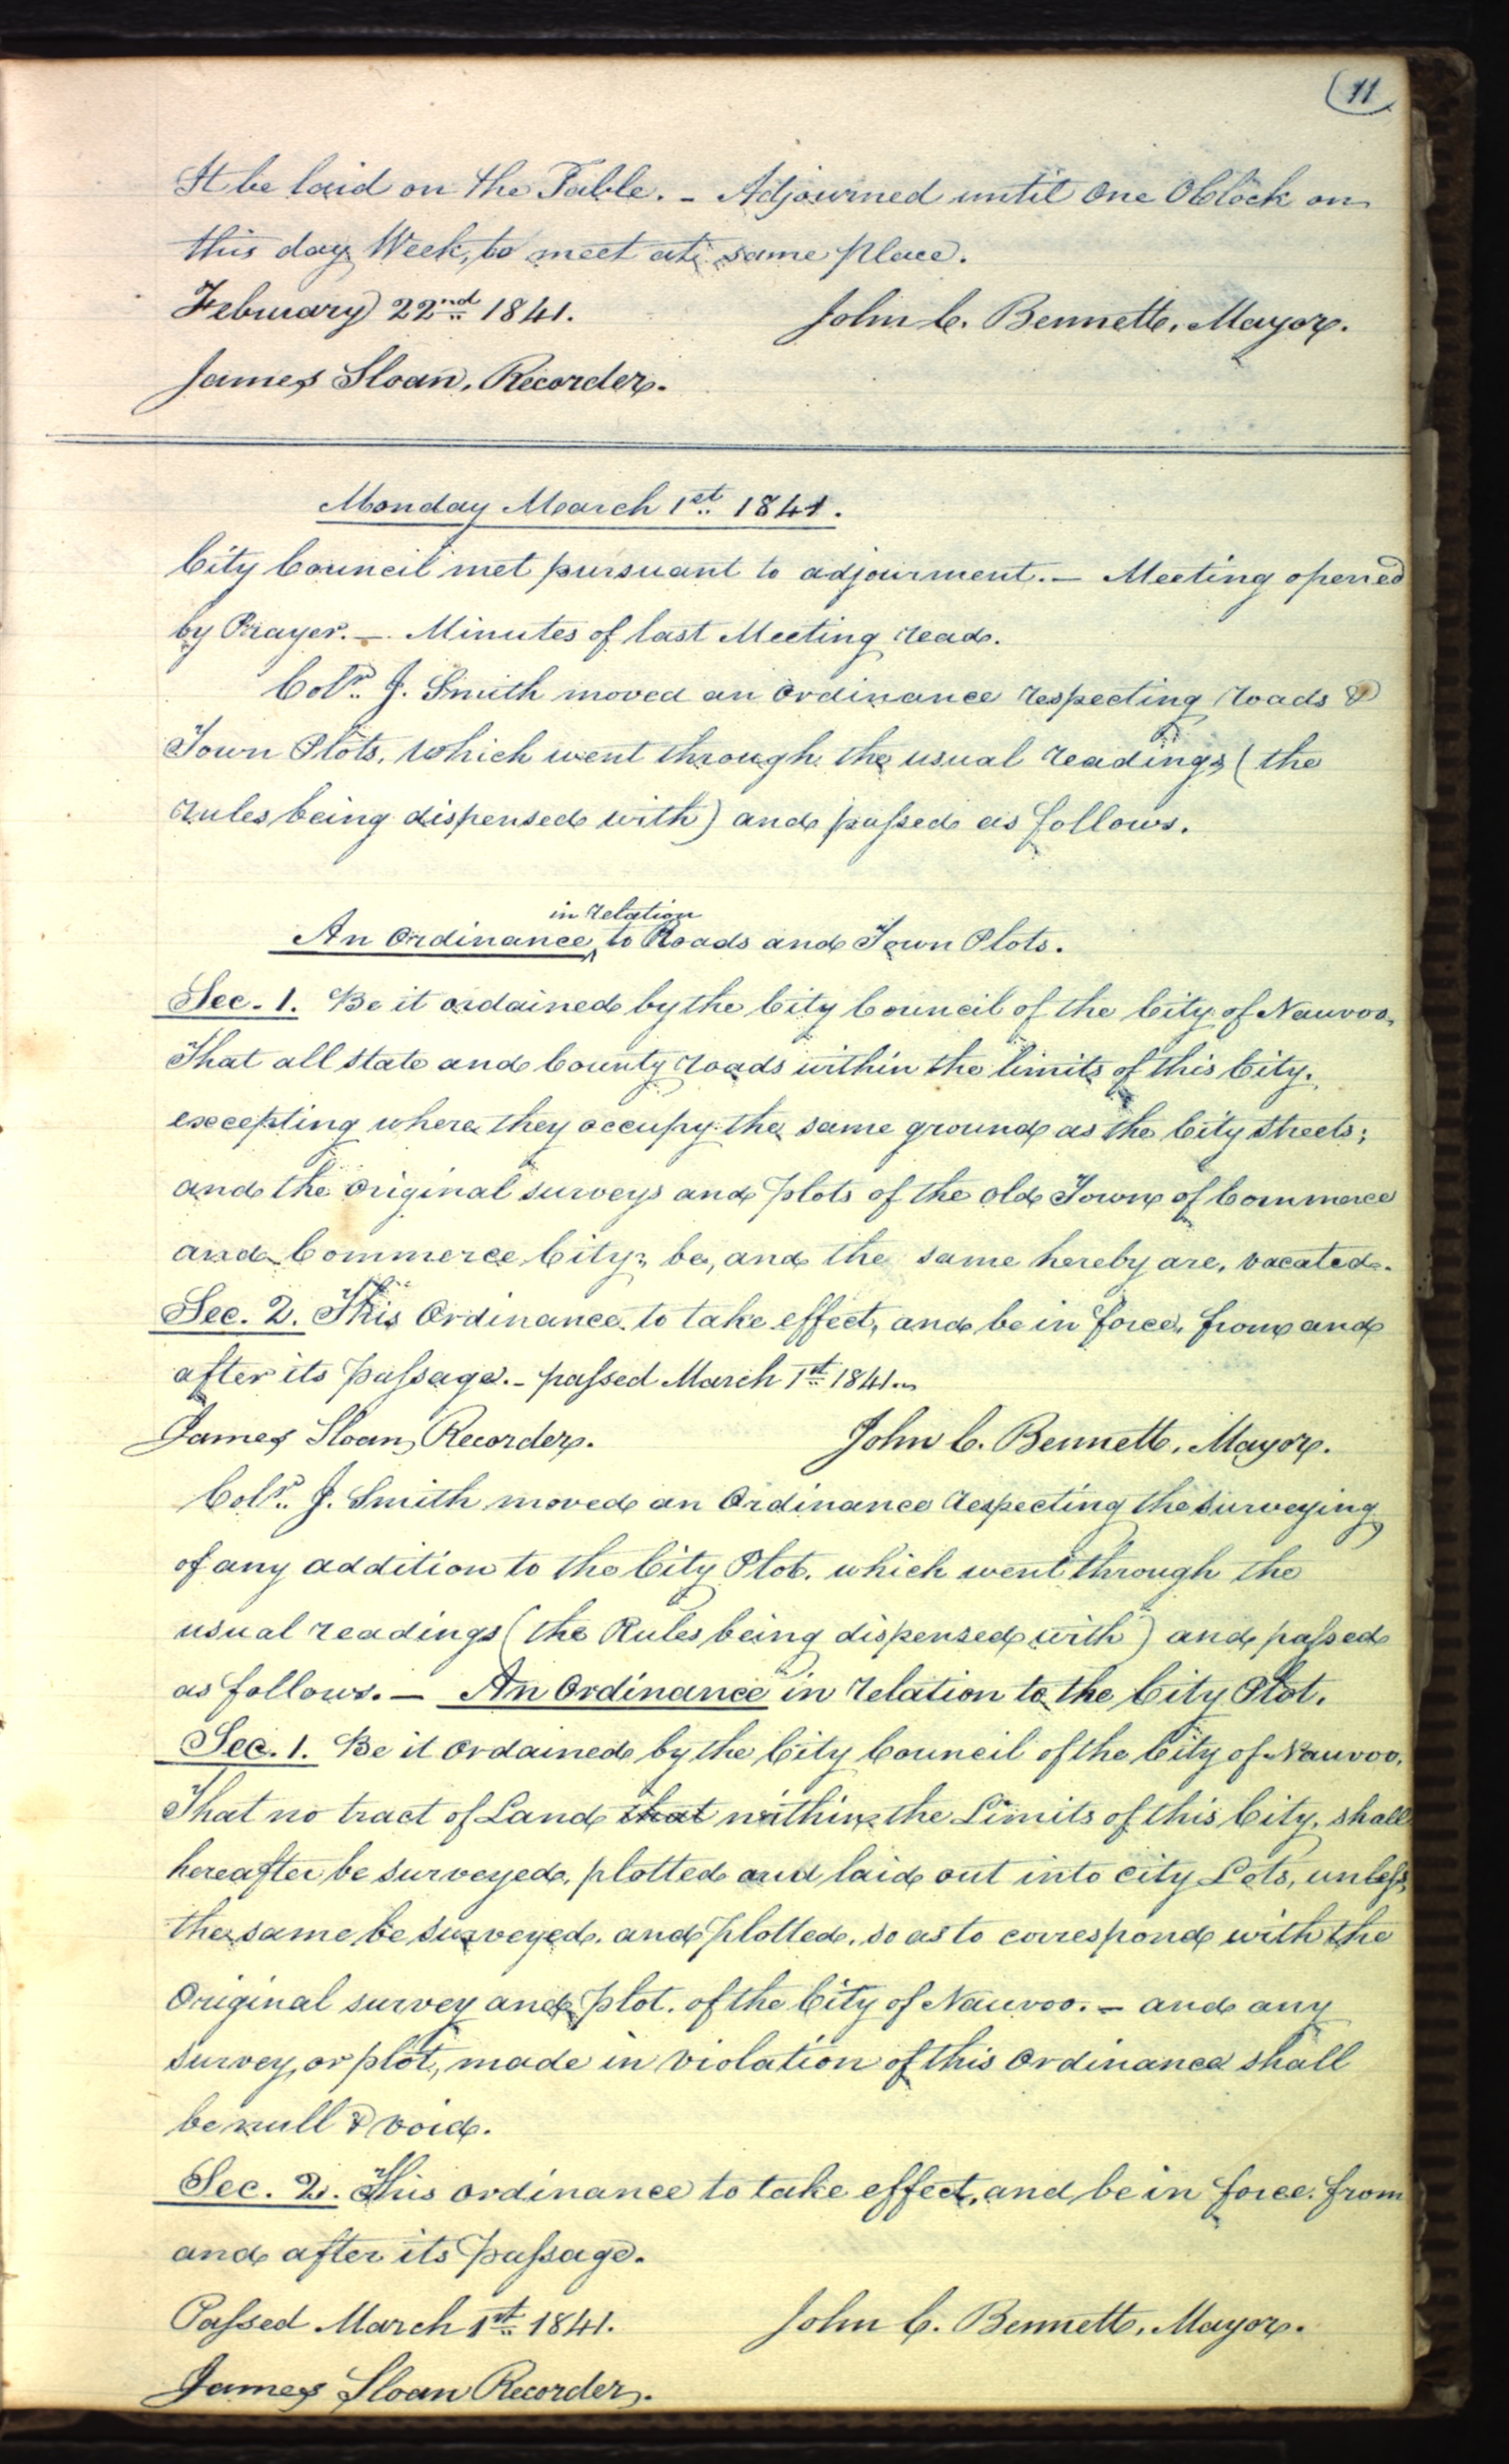 (11
It be laid on the Table. - Adjourned until One OClock on
this day Week, to meet at same place.
February 22nd 1841. John C. Bennett, Mayor.
James Sloan, Recorder.
Monday March 1st 1841.
City Council met pursuant to adjournment. — Meeting opened
by Prayer. — Minutes of last Meeting read.
Colr. J. Smith moved an Ordinance respecting Roads &
Town Plots, which went through the usual readings (the
rules being dispensed with) and passed as follows.
in relation
An Ordinance ^ to Roads and Town Plots.
Sec. 1. Be it ordained by the City Council of the City of Nauvoo,
That all state and County roads within the limits of this City,
excepting where they occupy the same ground as the City Streets;
and the original surveys and plots of the old Town of Commerce
and Commerce City; be, and the same hereby are, vacated.
Sec. 2. This Ordinance to take effect, and be in force, from and
after its passage. - passed March 1st 1841.
James Sloan, Recorder. John C. Bennett, Mayor.
Colr. J. Smith moved an Ordinance respecting the surveying
of any addition to the City Plot, which went through the
usual readings (the Rules being dispensed with) and passed
as follows. — An Ordinance in relation to the City Plot.
Sec. 1. Be it ordained by the City Council of the City of Nauvoo,
That no tract of Land that within the Limits of this City, shall
hereafter be surveyed, plotted and laid out into city Lots, unless
the same be surveyed, and plotted, so as to correspond with the
Original survey and plot, of the City of Nauvoo. — and any
survey, or plot, made in violation of this Ordinance shall
be null & void.
Sec. 2. This ordinance to take effect, and be in force, from
and after its passage.
Passed March 1st 1841. John C. Bennett, Mayor.
James Sloan Recorder.